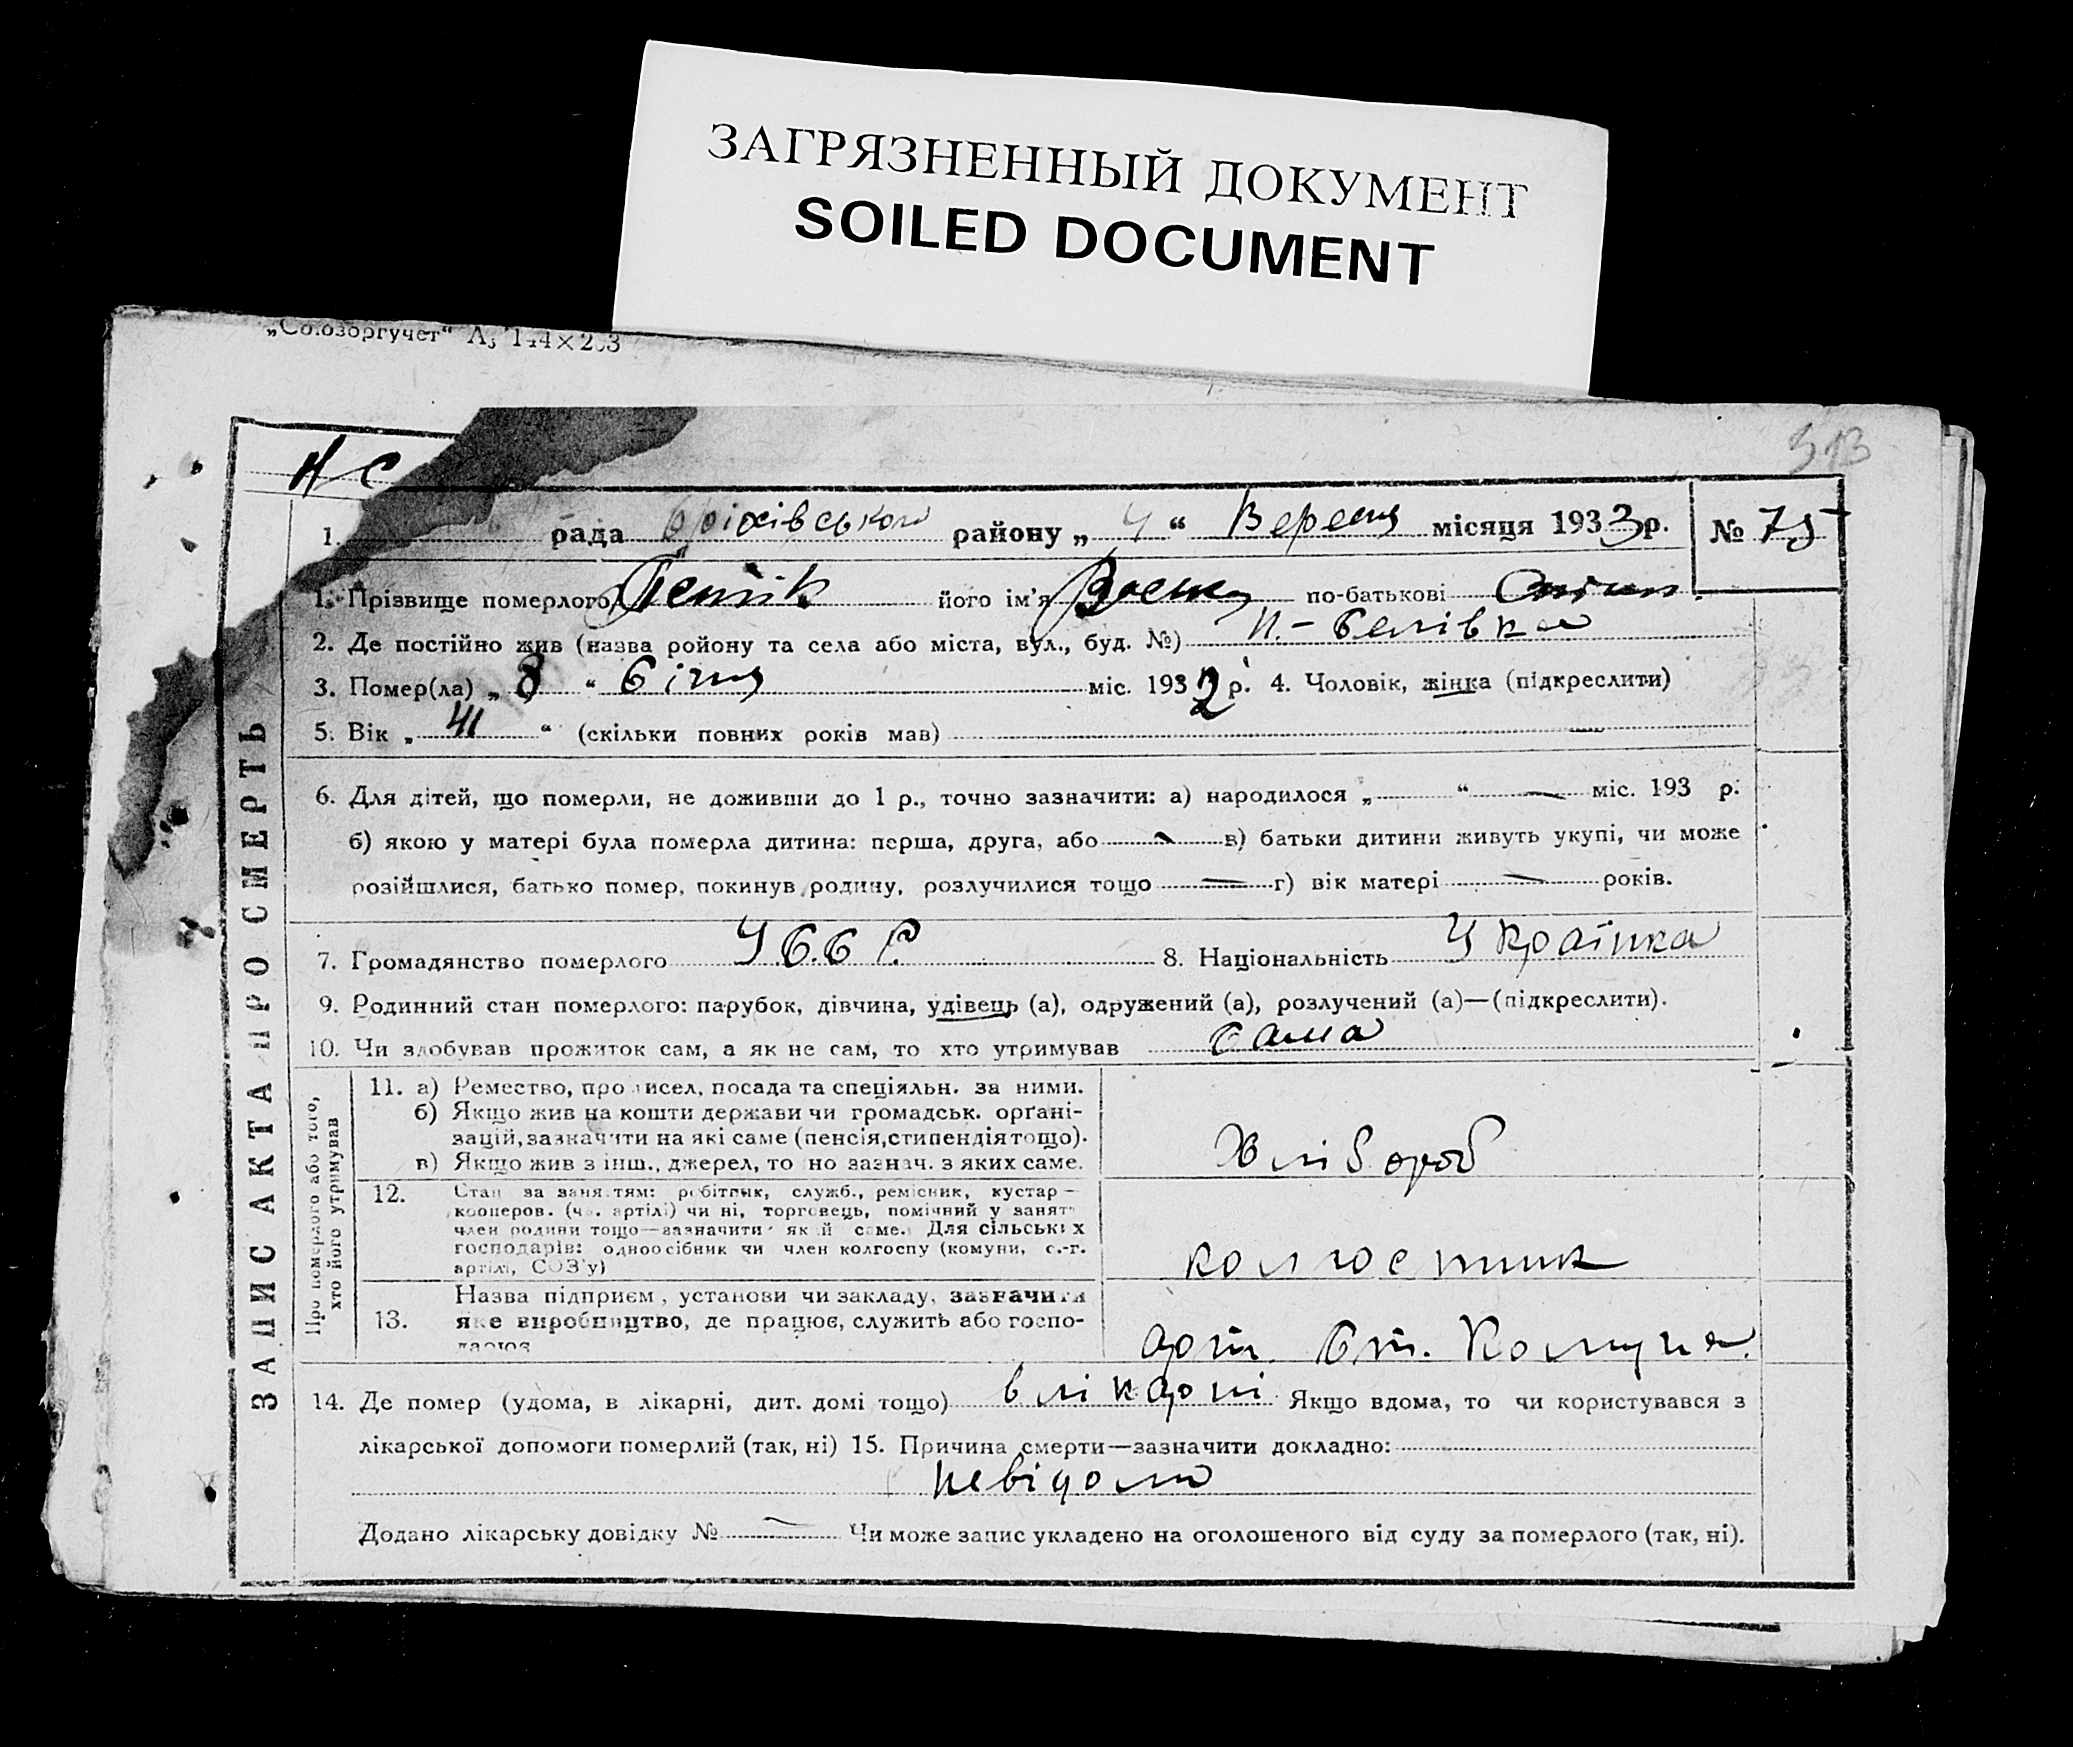 ЗАГРЯЗНЕННЫЙ ДОКУМЕНТ
SOILED DOCUMENT
„Союзоргучет“ А5 144×203
513
НС
1. рада Оріхівського району „ 4 “ Вересня місяця 1933 р. № 75
1. Прізвище померлого його ім'я по-батькові
2. Де постійно жив (назва ройону та села або міста, вул., буд. №)
3. Помер(ла) „ 8 “ Січня міс. 1932 р. 4. Чоловік, жінка (підкреслити)
5. Вік „ 41 “ (скільки повних років мав)
6. Для дітей, що померли, не доживши до 1 р., точно зазначити: а) народилося „ “ — міс. 193 р.
б) якою у матері була померла дитина: перша, друга, або — в) батьки дитини живуть укупі, чи може
розійшлися, батько помер, покинув родину, розлучилися тощо — г) вік матері — років.
7. Громадянство померлого УССР. 8. Національність Українка
9. Родинний стан померлого: парубок, дівчина, удівець (а), одружений (а), розлучений (а)—(підкреслити).
10. Чи здобував прожиток сам, а як не сам, то хто утримував Сама
ЗАПИС АКТА ПРО СМЕРТЬ
Про померлого або того,
хто його утримував
11. а) Ремество, промисел, посада та спеціяльн. за ними.
б) Якщо жив на кошти держави чи громадськ. орґані-
зацій, зазначити на які саме (пенсія, стипендія тощо).
в) Якщо жив з інш., джерел, то но зазнач. з яких саме.
Хлібороб
12. Стан за заняттям: робітник, служб., ремісник, кустар—
кооперов. (чл. артілі) чи ні, торговець, помічний у занятт
член родини тощо—зазначити який саме. Для сільських
господарів: одноосібник чи член колгоспу (комуни, с.-г.
артілі, СОЗ'у)
колгоспник
13. Назва підприєм, установи чи закладу, зазначити
яке виробництво, де працює, служить або госпо-
дарює
арт. Комуна.
14. Де помер (удома, в лікарні, дит. домі тощо) в лікарні Якщо вдома, то чи користувався з
лікарської допомоги померлий (так, ні) 15. Причина смерти—зазначити докладно:
невідомо
Додано лікарську довідку № — Чи може запис укладено на оголошеного від суду за померлого (так, ні).